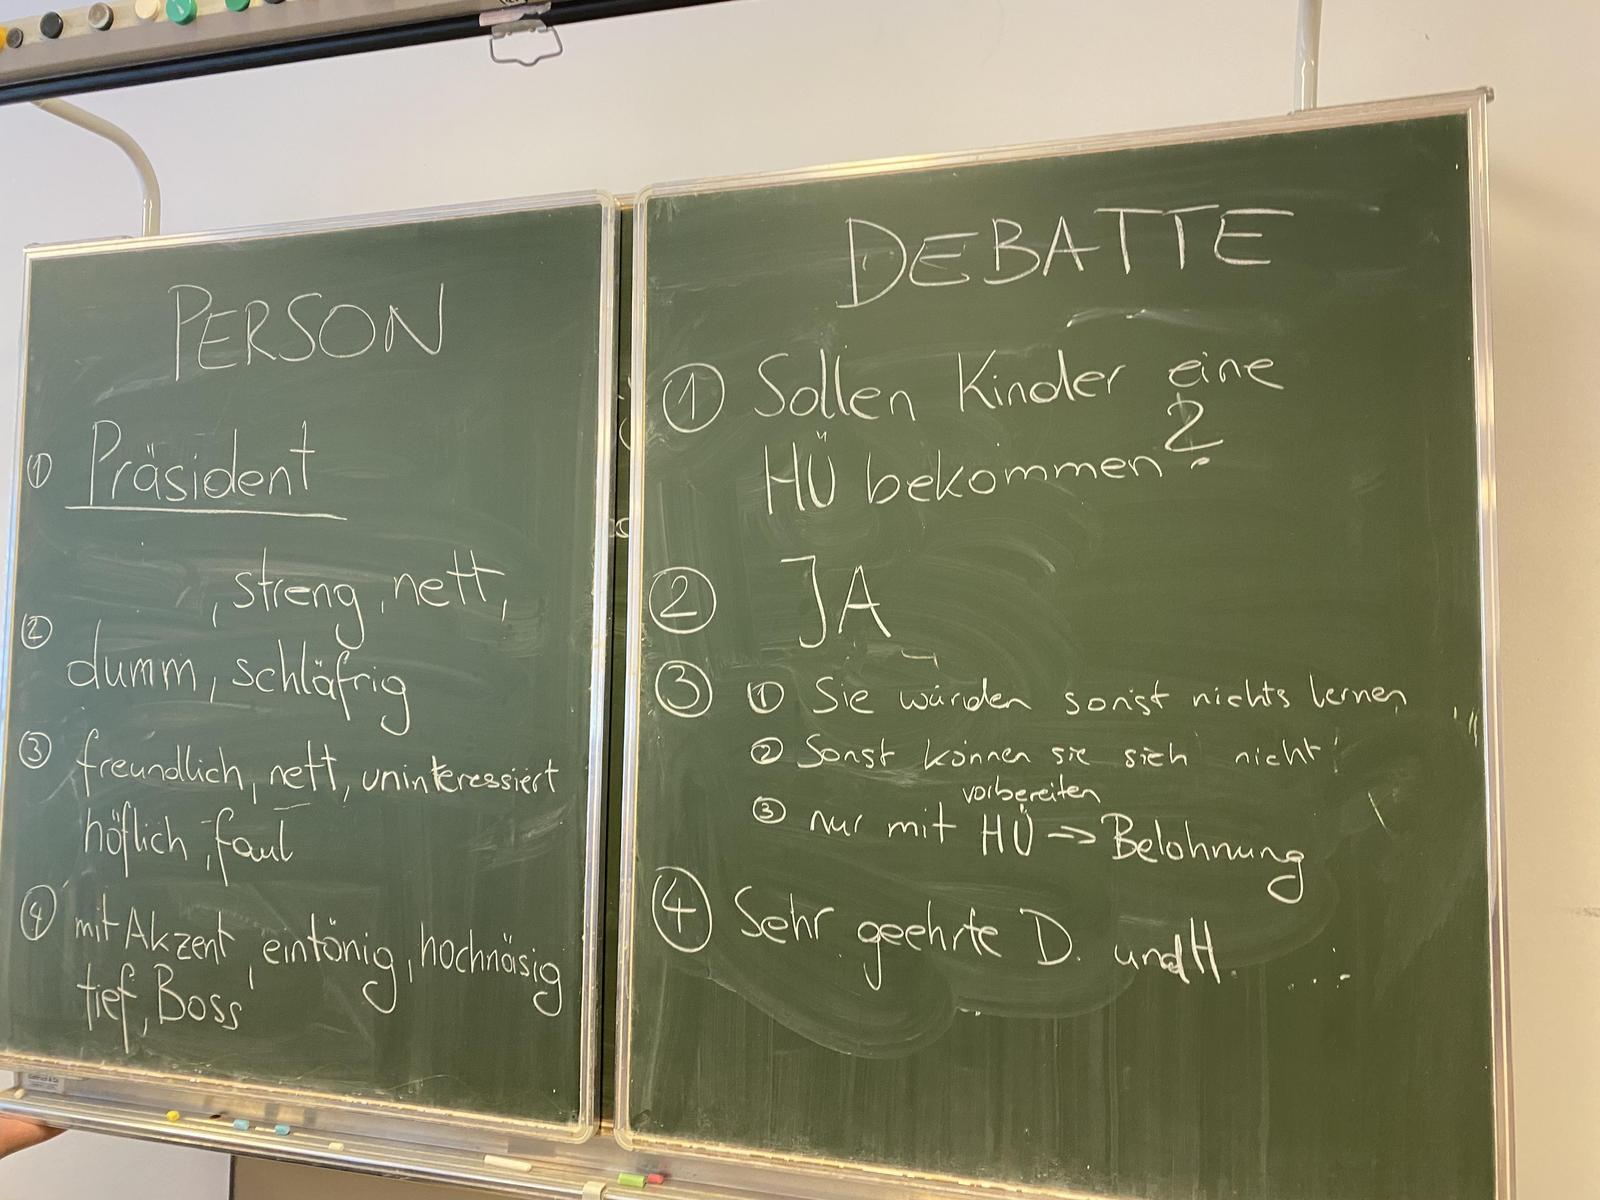 PERSON
① Präsident
, streng, nett,
② dumm, schläfrig
③ freundlich, nett, uninteressiert
höflich, faul
④ mit Akzent, eintönig, hochnäsig
tief, Boss
DEBATTE
① Sollen Kinder eine
HÜ bekommen?
② JA
③ ① Sie würden sonst nichts lernen
② Sonst können sie sich nicht
vorbereiten
③ nur mit HÜ -> Belohnung
④ Sehr geehrte D. und H. ...